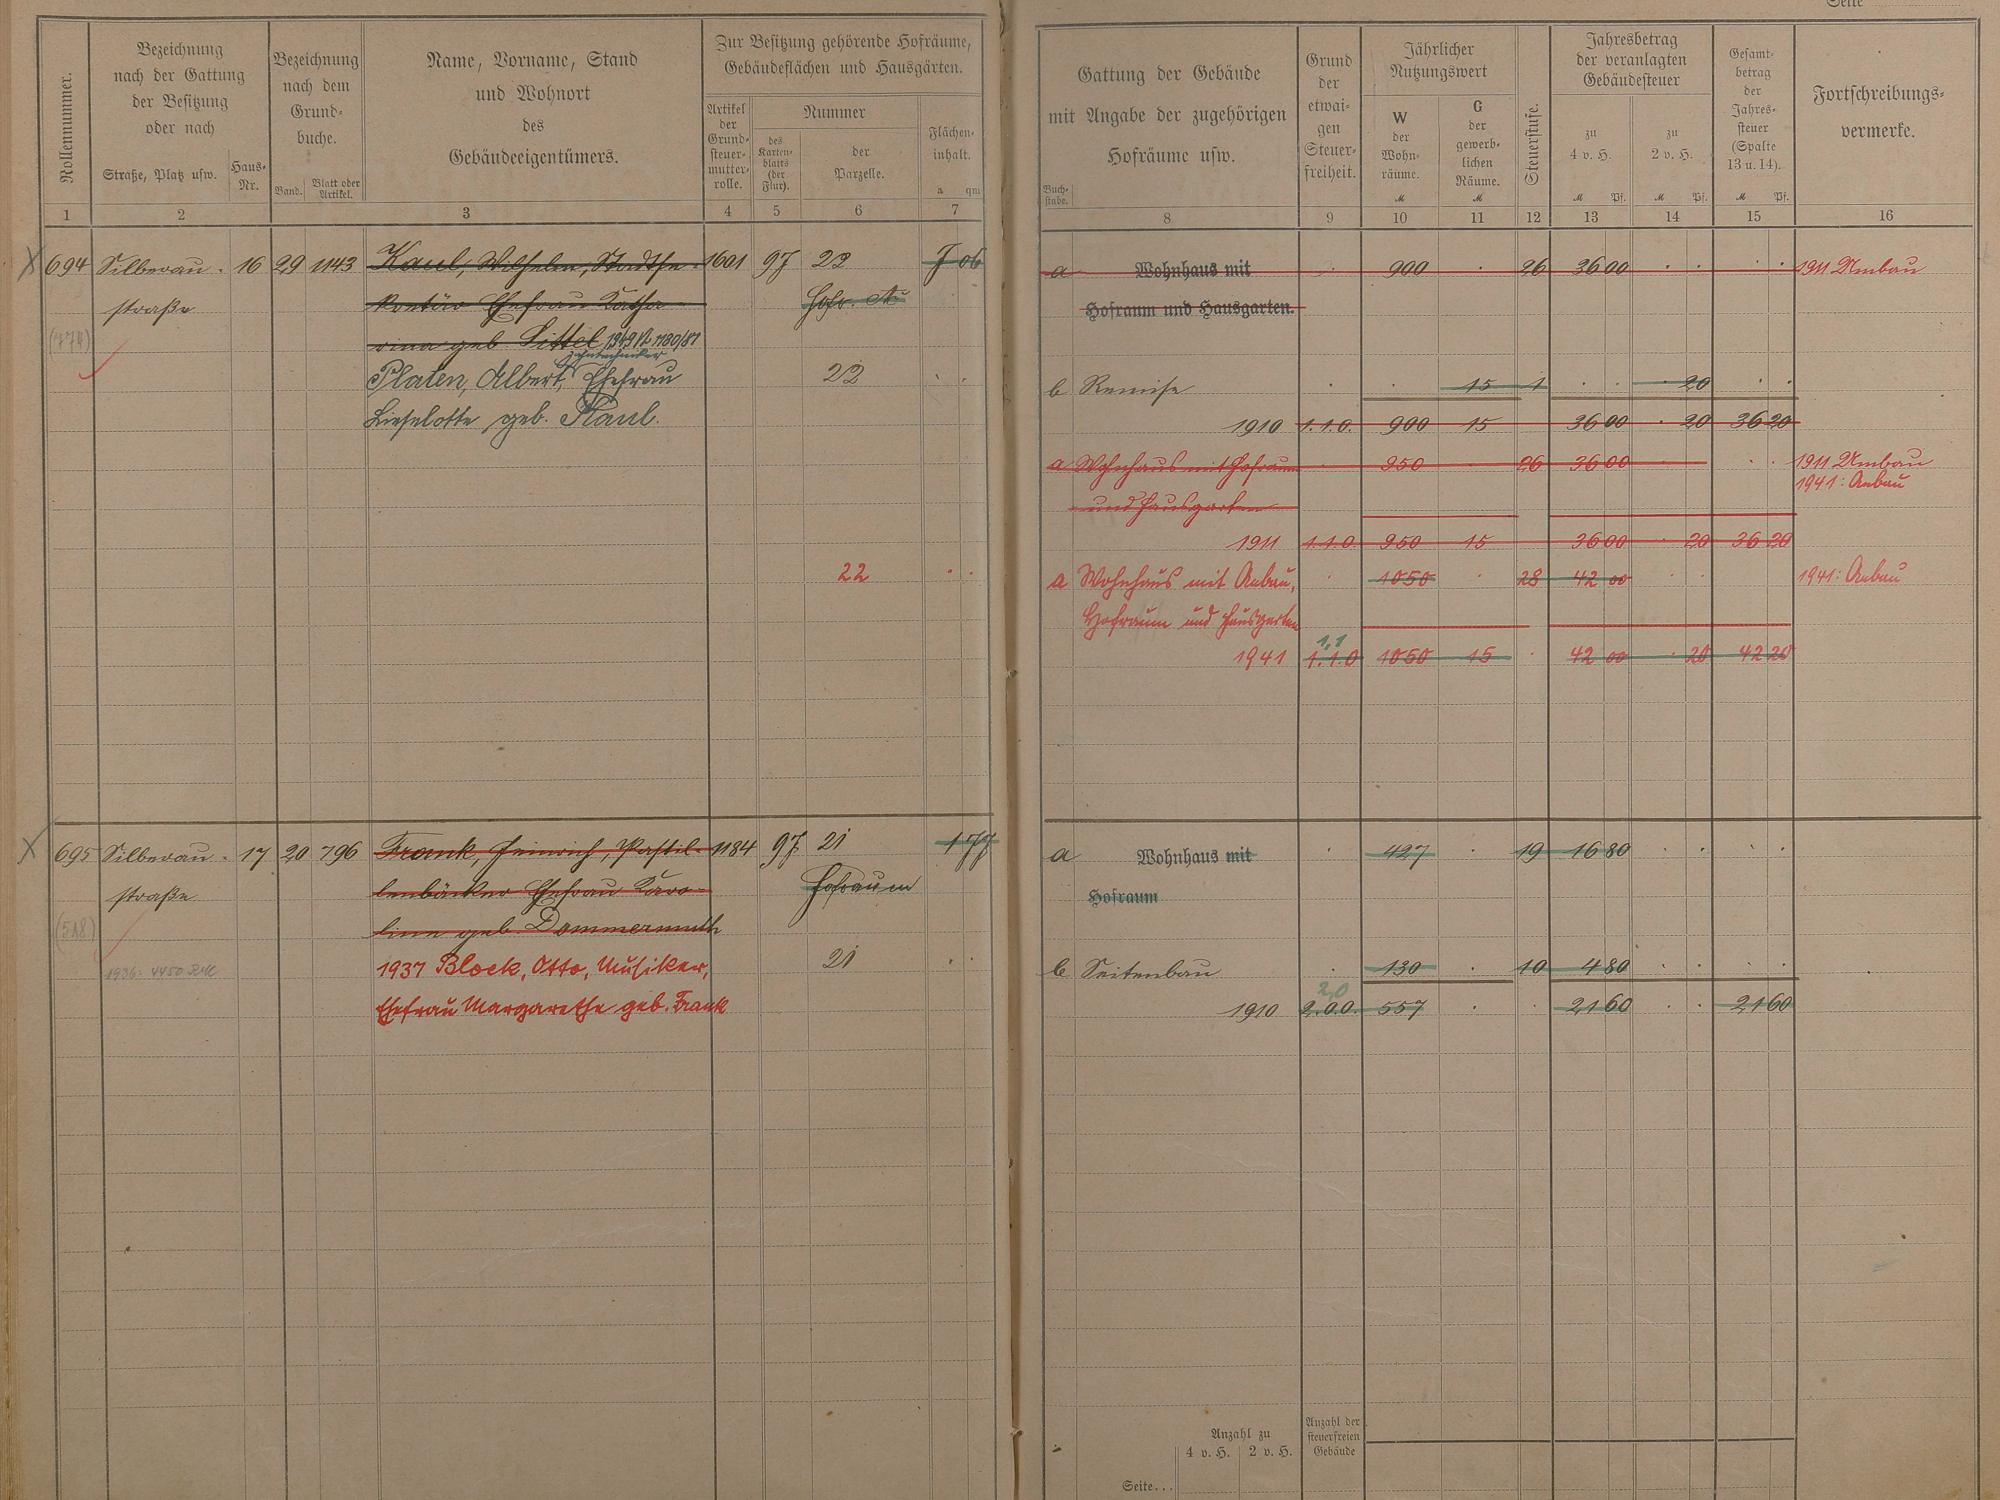 Seite
Rollennummer.
Bezeichnung
nach der Gattung
der Besitzung
oder nach
Straße, Platz usw.
Haus-
Nr.
Bezeichnung
nach dem
Grund-
buche.
Band.
Blatt oder
Artikel.
Name, Vorname, Stand
und Wohnort
des
Gebäudeeigentümers.
Zur Besitzung gehörende Hofräume,
Gebäudeflächen und Hausgärten.
Artikel
der
Grund-
steuer-
mutter-
rolle.
Nummer
des
Karten-
blatts
(der
Flur).
der
Parzelle.
Flächen-
inhalt.
a qm
1 2 3 4 5 6 7
694 Silberau- 16 29 1143 Kaul, Wilhelm, Stadtse- 1601 97 22 7 06
straße kretär Ehefrau Katha- Hofr. A
(774) rina geb. Littel 1949
Zahntechniker
Platen, Albert, Ehefrau 22
Lieselotte geb. Kaul.
22
695 Silberau- 17 20 796 Frank, Heinrich, Pastil- 1184 97 21 1 77
straße lenbäcker Ehefrau Karo- Hofraum
(518) line geb. Dommermuth
1936: 4450 RM 1937 Block, Otto, Musiker, 21
Ehefrau Margarethe geb. Frank
Gattung der Gebäude
mit Angabe der zugehörigen
Hofräume usw.
Buch-
stabe.
Grund
der
etwai-
gen
Steuer-
freiheit.
Jährlicher
Nutzungswert
W
der
Wohn-
räume.
M
G
der
gewerb-
lichen
Räume.
M
Steuerstufe.
Jahresbetrag
der veranlagten
Gebäudesteuer
zu
4 v. H.
M Pf.
zu
2 v. H.
M Pf.
Gesamt-
betrag
der
Jahres-
steuer
(Spalte
13 u. 14).
M Pf.
Fortschreibungs-
vermerke.
8 9 10 11 12 13 14 15 16
a Wohnhaus mit 900 26 36 00 1911 Umbau
Hofraum und Hausgarten.
b Remise 15 1 20
1910 1.1.0. 900 15 36 00 20 36 20
a Wohnhaus mit Hofraum 950 26 36 00 1911 Umbau
1941: Anbau
und Hausgarten
1911 1.1.0. 950 15 36 00 20 36 20
a Wohnhaus mit Anbau, 1050 28 42 00 1941: Anbau
Hofraum und Hausgarten
1,1
1941 1.1.0 1050 15 42 00 20 42 20
a Wohnhaus mit 427 19 16 80
Hofraum
b Seitenbau 130 10 4 80
2,0
1910 2.0.0. 557 21 60 21 60
Anzahl zu
4 v. H. 2 v. H.
Anzahl der
steuerfreien
Gebäude
Seite...